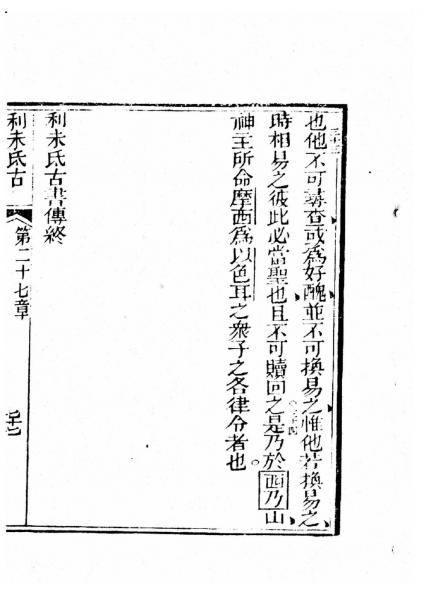 三十三
也他不可尋查或為好醜並不可換易之惟他若換易之
時相易之彼此必當聖也且不可贖回之。三十四是乃於西乃山
神主所命摩西為以色耳之衆子之各律令者也。
利未氏古書傳終
利未氏古
第二十七章